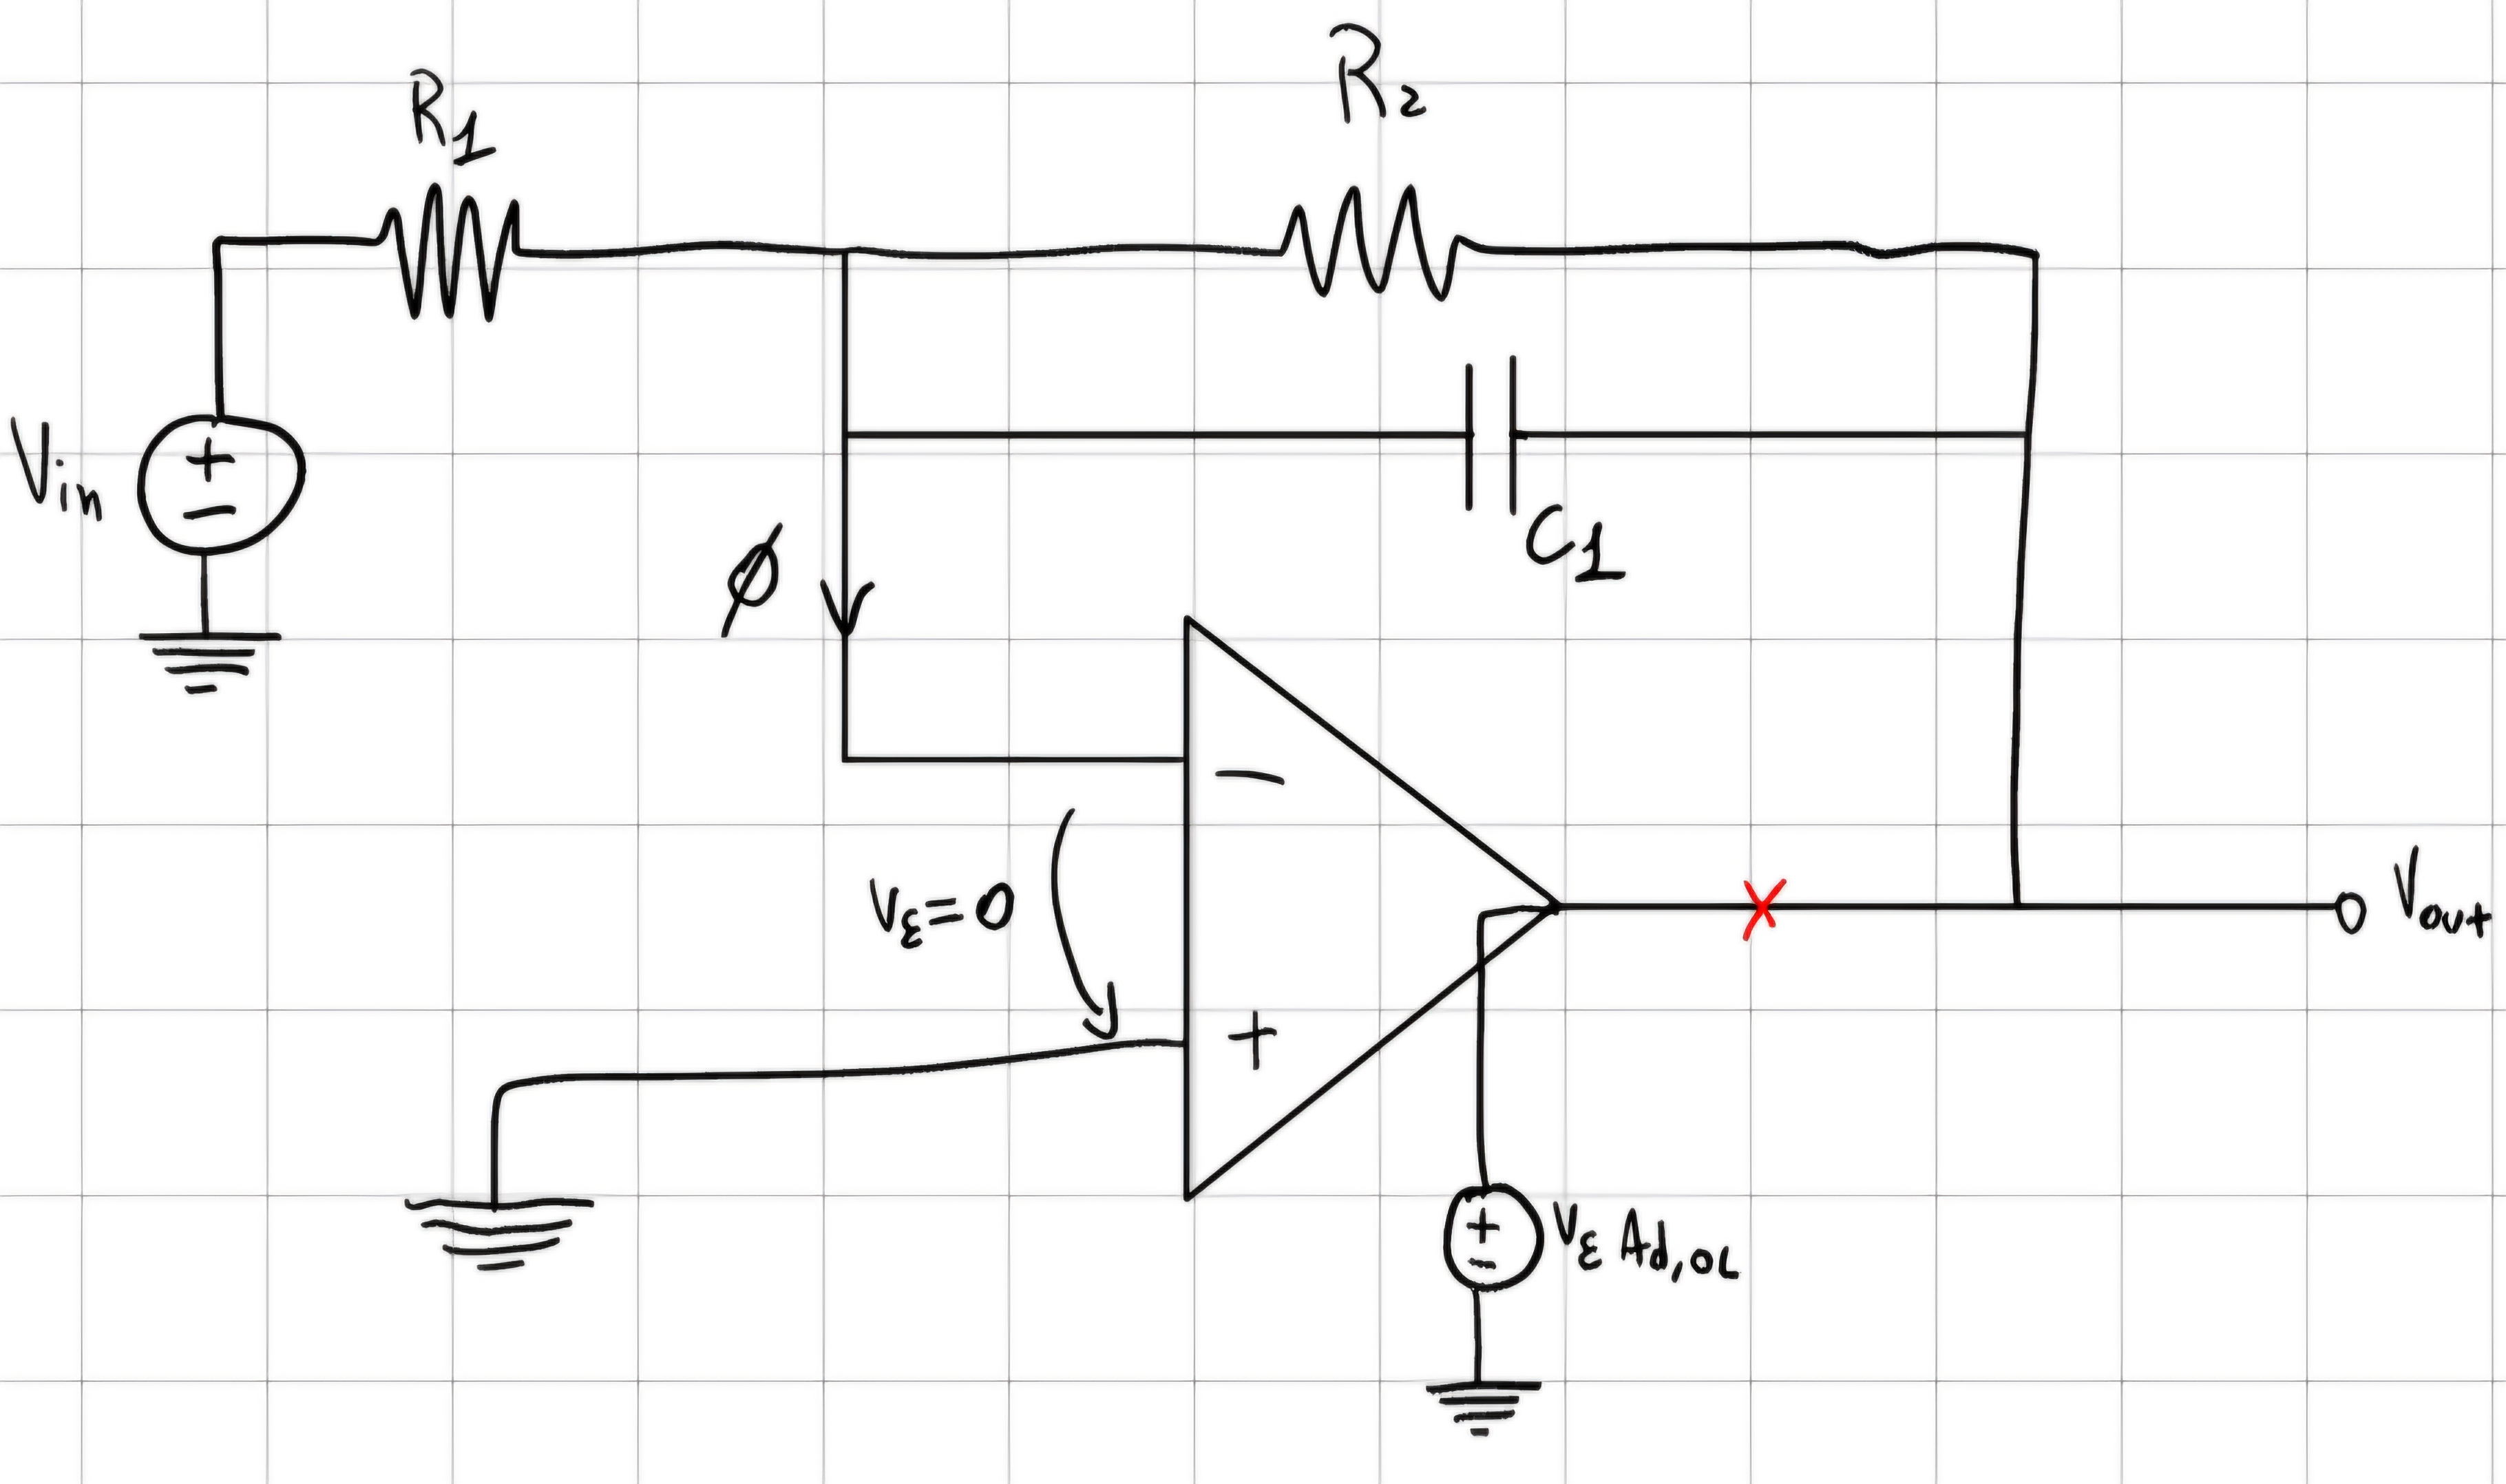 R₁
R₂
Vin
+
−
C₁
∅
−
Vε=0
+
X
Vout
+
−
Vε Ad,OL